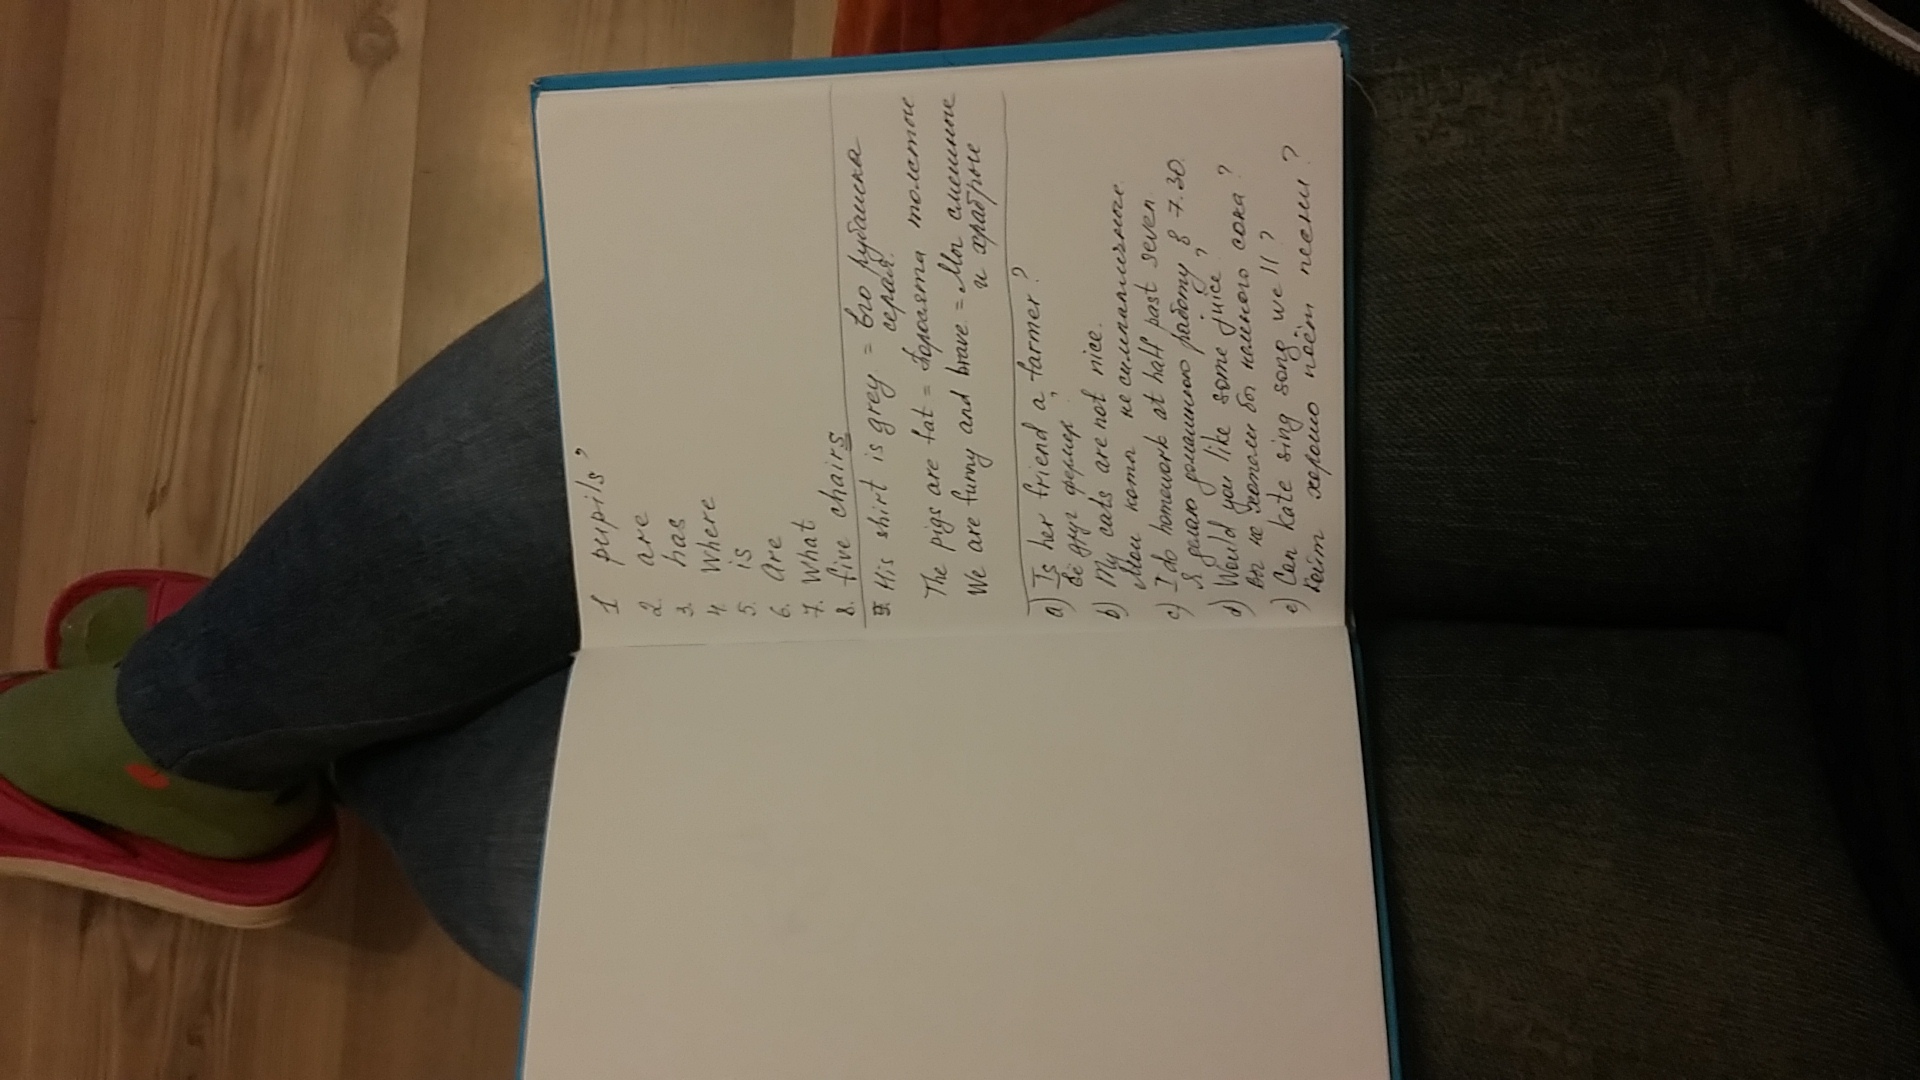 1 pupils'
2. are
3. has
4. Where
5. is
6. Are
7. What
8. five chairs
II His shirt is grey = Его рубашка
серая.
The pigs are fat = Поросята толстые
We are funny and brave = Мы смешные
и храбрые
a) Is her friend a farmer?
Её друг фермер?
b) My cats are not nice.
Мои коты не симпатичные.
c) I do homework at half past seven
Я делаю домашнюю работу в 7.30.
d) Would you like some juice?
Вы не хотели бы немного сока?
e) Can Kate sing song well?
Кейт хорошо поёт песни?